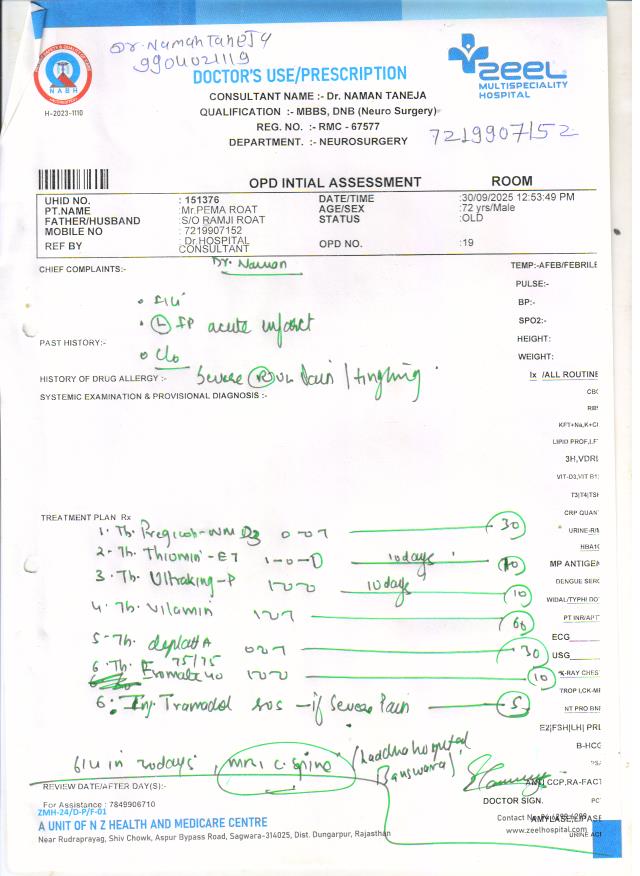 Dr. Naman Taneja
9904021119
NABH
H-2023-1110
DOCTOR'S USE/PRESCRIPTION
ZEEL
MULTISPECIALITY
HOSPITAL
CONSULTANT NAME :- Dr. NAMAN TANEJA
QUALIFICATION :- MBBS, DNB (Neuro Surgery)
REG. NO. :- RMC - 67577
DEPARTMENT. :- NEUROSURGERY
7219907152
OPD INTIAL ASSESSMENT ROOM
UHID NO. : 151376 DATE/TIME :30/09/2025 12:53:49 PM
PT.NAME :Mr.PEMA ROAT AGE/SEX :72 yrs/Male
FATHER/HUSBAND :S/O RAMJI ROAT STATUS :OLD
MOBILE NO : 7219907152
REF BY : Dr.HOSPITAL CONSULTANT OPD NO. :19
Dr. Naman
CHIEF COMPLAINTS:- TEMP:-AFEB/FEBRILE
PULSE:-
BP:-
SPO2:-
HEIGHT:
WEIGHT:
• (L) acute infarct
PAST HISTORY:-
• C/o
HISTORY OF DRUG ALLERGY :- Severe (R) UL Pain / tingling.
Ix /ALL ROUTINE
SYSTEMIC EXAMINATION & PROVISIONAL DIAGNOSIS :-
CBC
KFT+Na,K+Cl
LIPID PROF,LF
3H,VDRL
VIT-D3,VIT B1
T3|T4|TSH
CRP QUAN
TREATMENT PLAN Rx
1. Tb. NM D3 30
URINE-R/M
HBA1C
2. Tb. 1-0-0 10 days 10
MP ANTIGEN
3. Tb. Ultraking-P 10 days 10
DENGUE SERO
WIDAL/TYPHI DO
4. Tb. 60
PT INR/APT
5. Tb. deplatt A 75/75 30
ECG
USG
6. Tb. 40 10
X-RAY CHES
TROP I,CK-M
6. Inj. Tramadol sos - if Severe Pain 5
NT PRO BN
E2|FSH|LH| PRL
B-HCG
f/u in 20 days, MRI C. Spine (Laddha hospital Banswara)
REVIEW DATE/AFTER DAY(S):-
CCP,RA-FACT
DOCTOR SIGN.
For Assistance : 7849906710
ZMH-24/D-P/F-01
A UNIT OF N Z HEALTH AND MEDICARE CENTRE
AMYLASE,LIPASE
www.zeelhospital.com
Near Rudraprayag, Shiv Chowk, Aspur Bypass Road, Sagwara-314025, Dist. Dungarpur, Rajasthan
URINE